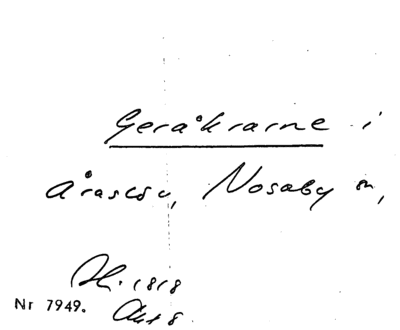 Geråkrarne i
Åraslöv, Nosaby sn,
Sk. 1818
Nr 7949. Akt 8